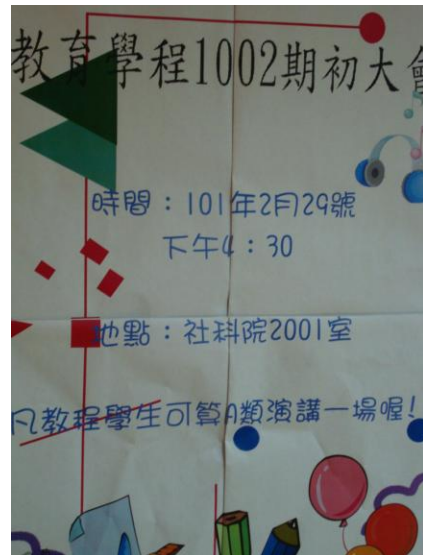 教育學程1002期初大會
時間：101年2月29號
下午4：30
地點：社科院2001室
凡教程學生可算A類演講一場喔!